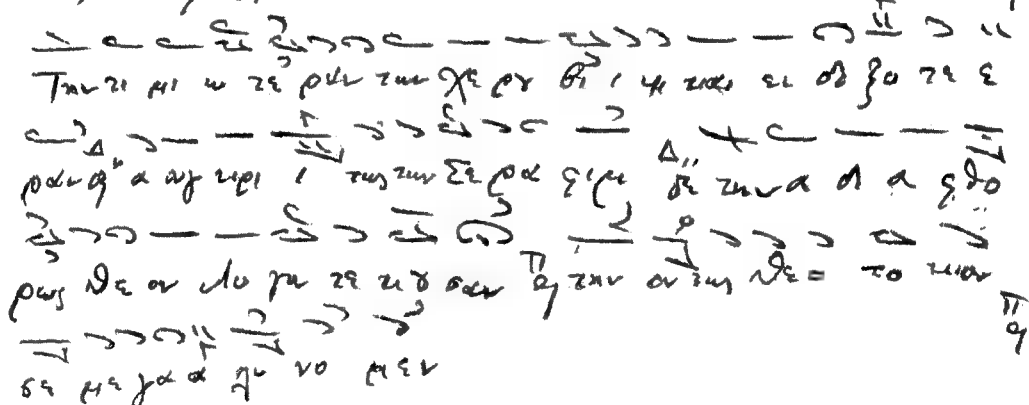 Την τι μι ω τε ραν των χε ρου βι ι μ και εν δο ξο τε ε
ραν α συγ κρι ι τως των Σε ρα φιμ την α δι α φθο
ρως Θε ον Λο γον τε κου σαν την ον τως Θε ο το κον
σε με γα α λυ νο μεν